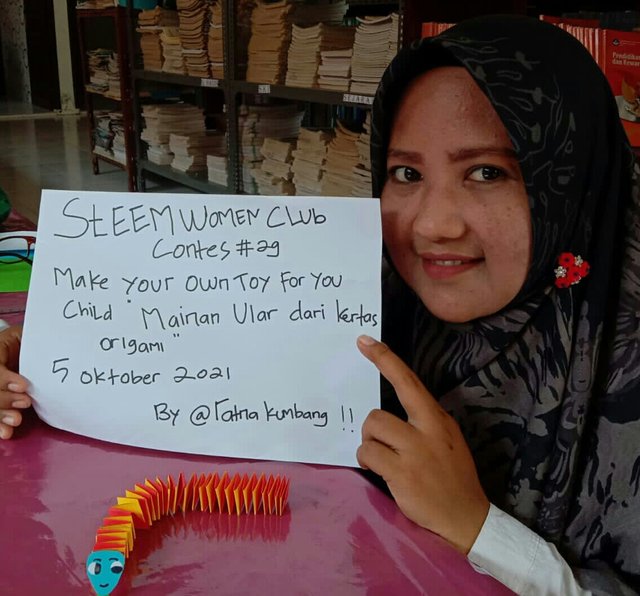 StEEM WOMEN Club
Contes #29
Make your own Toy For you
Child " Mainan Ular dari kertas
origami "
5 oktober 2021
By @ratna kumbang !!
Pendidikan